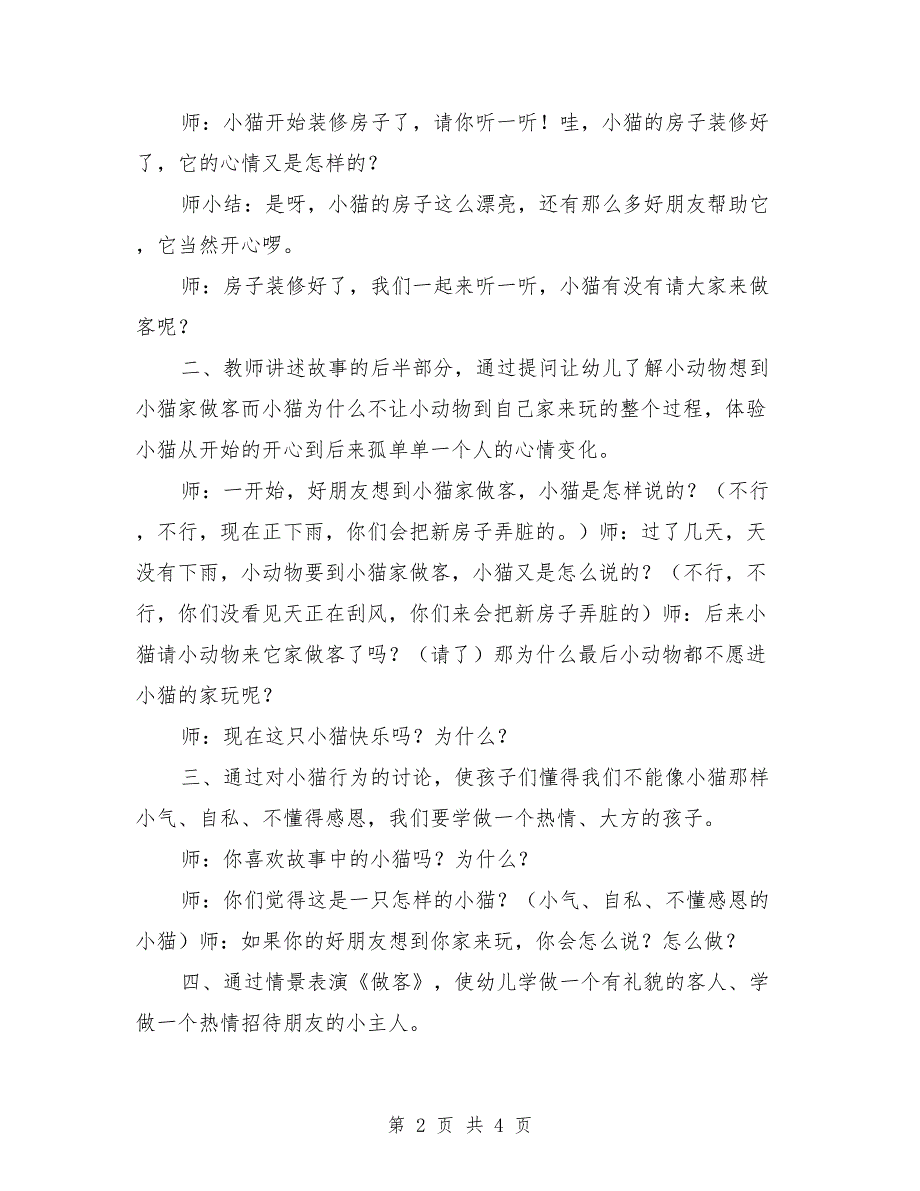 师：小猫开始装修房子了，请你听一听！哇，小猫的房子装修好
了，它的心情又是怎样的？
师小结：是呀，小猫的房子这么漂亮，还有那么多好朋友帮助它
，它当然开心啰。
师：房子装修好了，我们一起来听一听，小猫有没有请大家来做
客呢？
二、教师讲述故事的后半部分，通过提问让幼儿了解小动物想到
小猫家做客而小猫为什么不让小动物到自己家来玩的整个过程，体验
小猫从开始的开心到后来孤单单一个人的心情变化。
师：一开始，好朋友想到小猫家做客，小猫是怎样说的？（不行
，不行，现在正下雨，你们会把新房子弄脏的。）师：过了几天，天
没有下雨，小动物要到小猫家做客，小猫又是怎么说的？（不行，不
行，你们没看见天正在刮风，你们来会把新房子弄脏的）师：后来小
猫请小动物来它家做客了吗？（请了）那为什么最后小动物都不愿进
小猫的家玩呢？
师：现在这只小猫快乐吗？为什么？
三、通过对小猫行为的讨论，使孩子们懂得我们不能像小猫那样
小气、自私、不懂得感恩，我们要学做一个热情、大方的孩子。
师：你喜欢故事中的小猫吗？为什么？
师：你们觉得这是一只怎样的小猫？（小气、自私、不懂感恩的
小猫）师：如果你的好朋友想到你家来玩，你会怎么说？怎么做？
四、通过情景表演《做客》，使幼儿学做一个有礼貌的客人、学
做一个热情招待朋友的小主人。
第 2 页 共 4 页